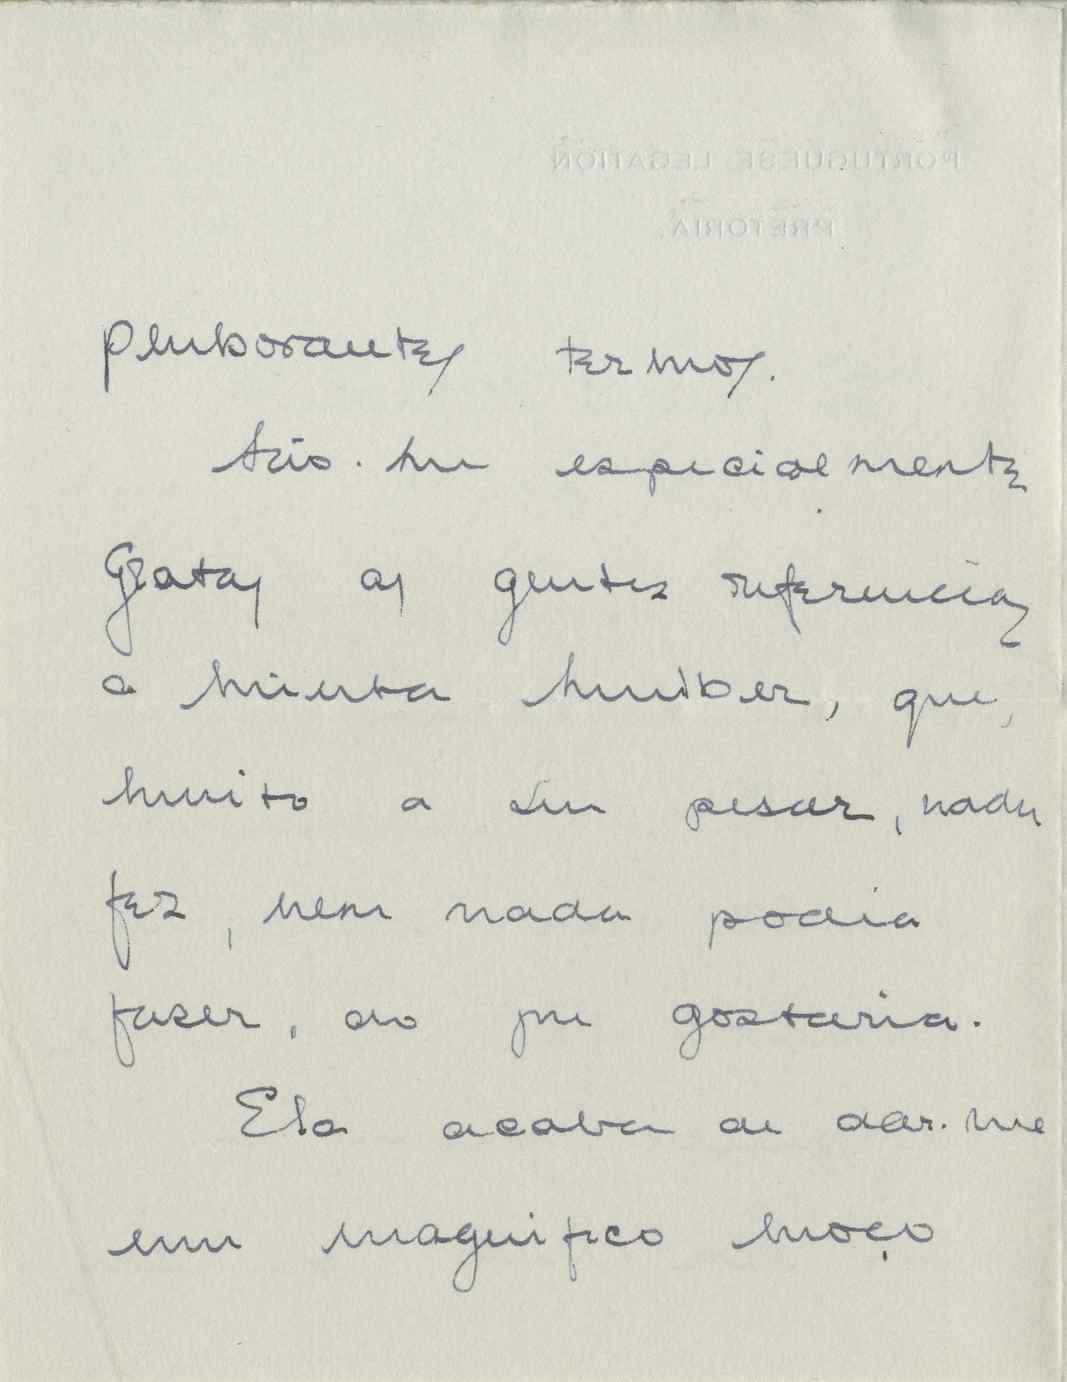 PORTUGUESE LEGATION
PRETORIA.
penhorantes termos.
São-me especialmente
gratas as gentis referencias
a minha mulher, que,
muito a seu pesar, nada
fez, nem nada podia
fazer, do que gostaria.
Ela acaba de dar-me
um magnifico moço